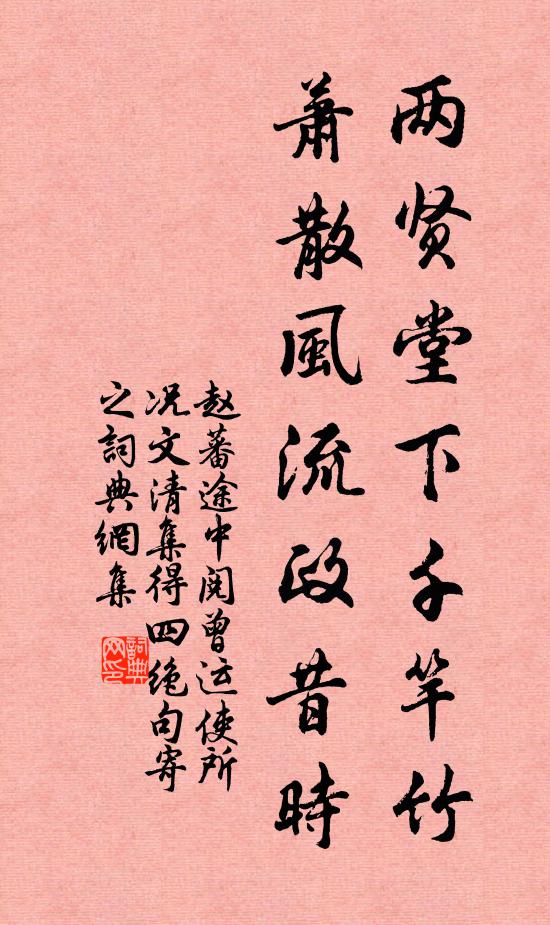 两贤堂下千竿竹
蕭散風流政昔時
赵蕃途中阅曾运使所
况文清集得四绝句寄
之詞典網集
詞典
网印